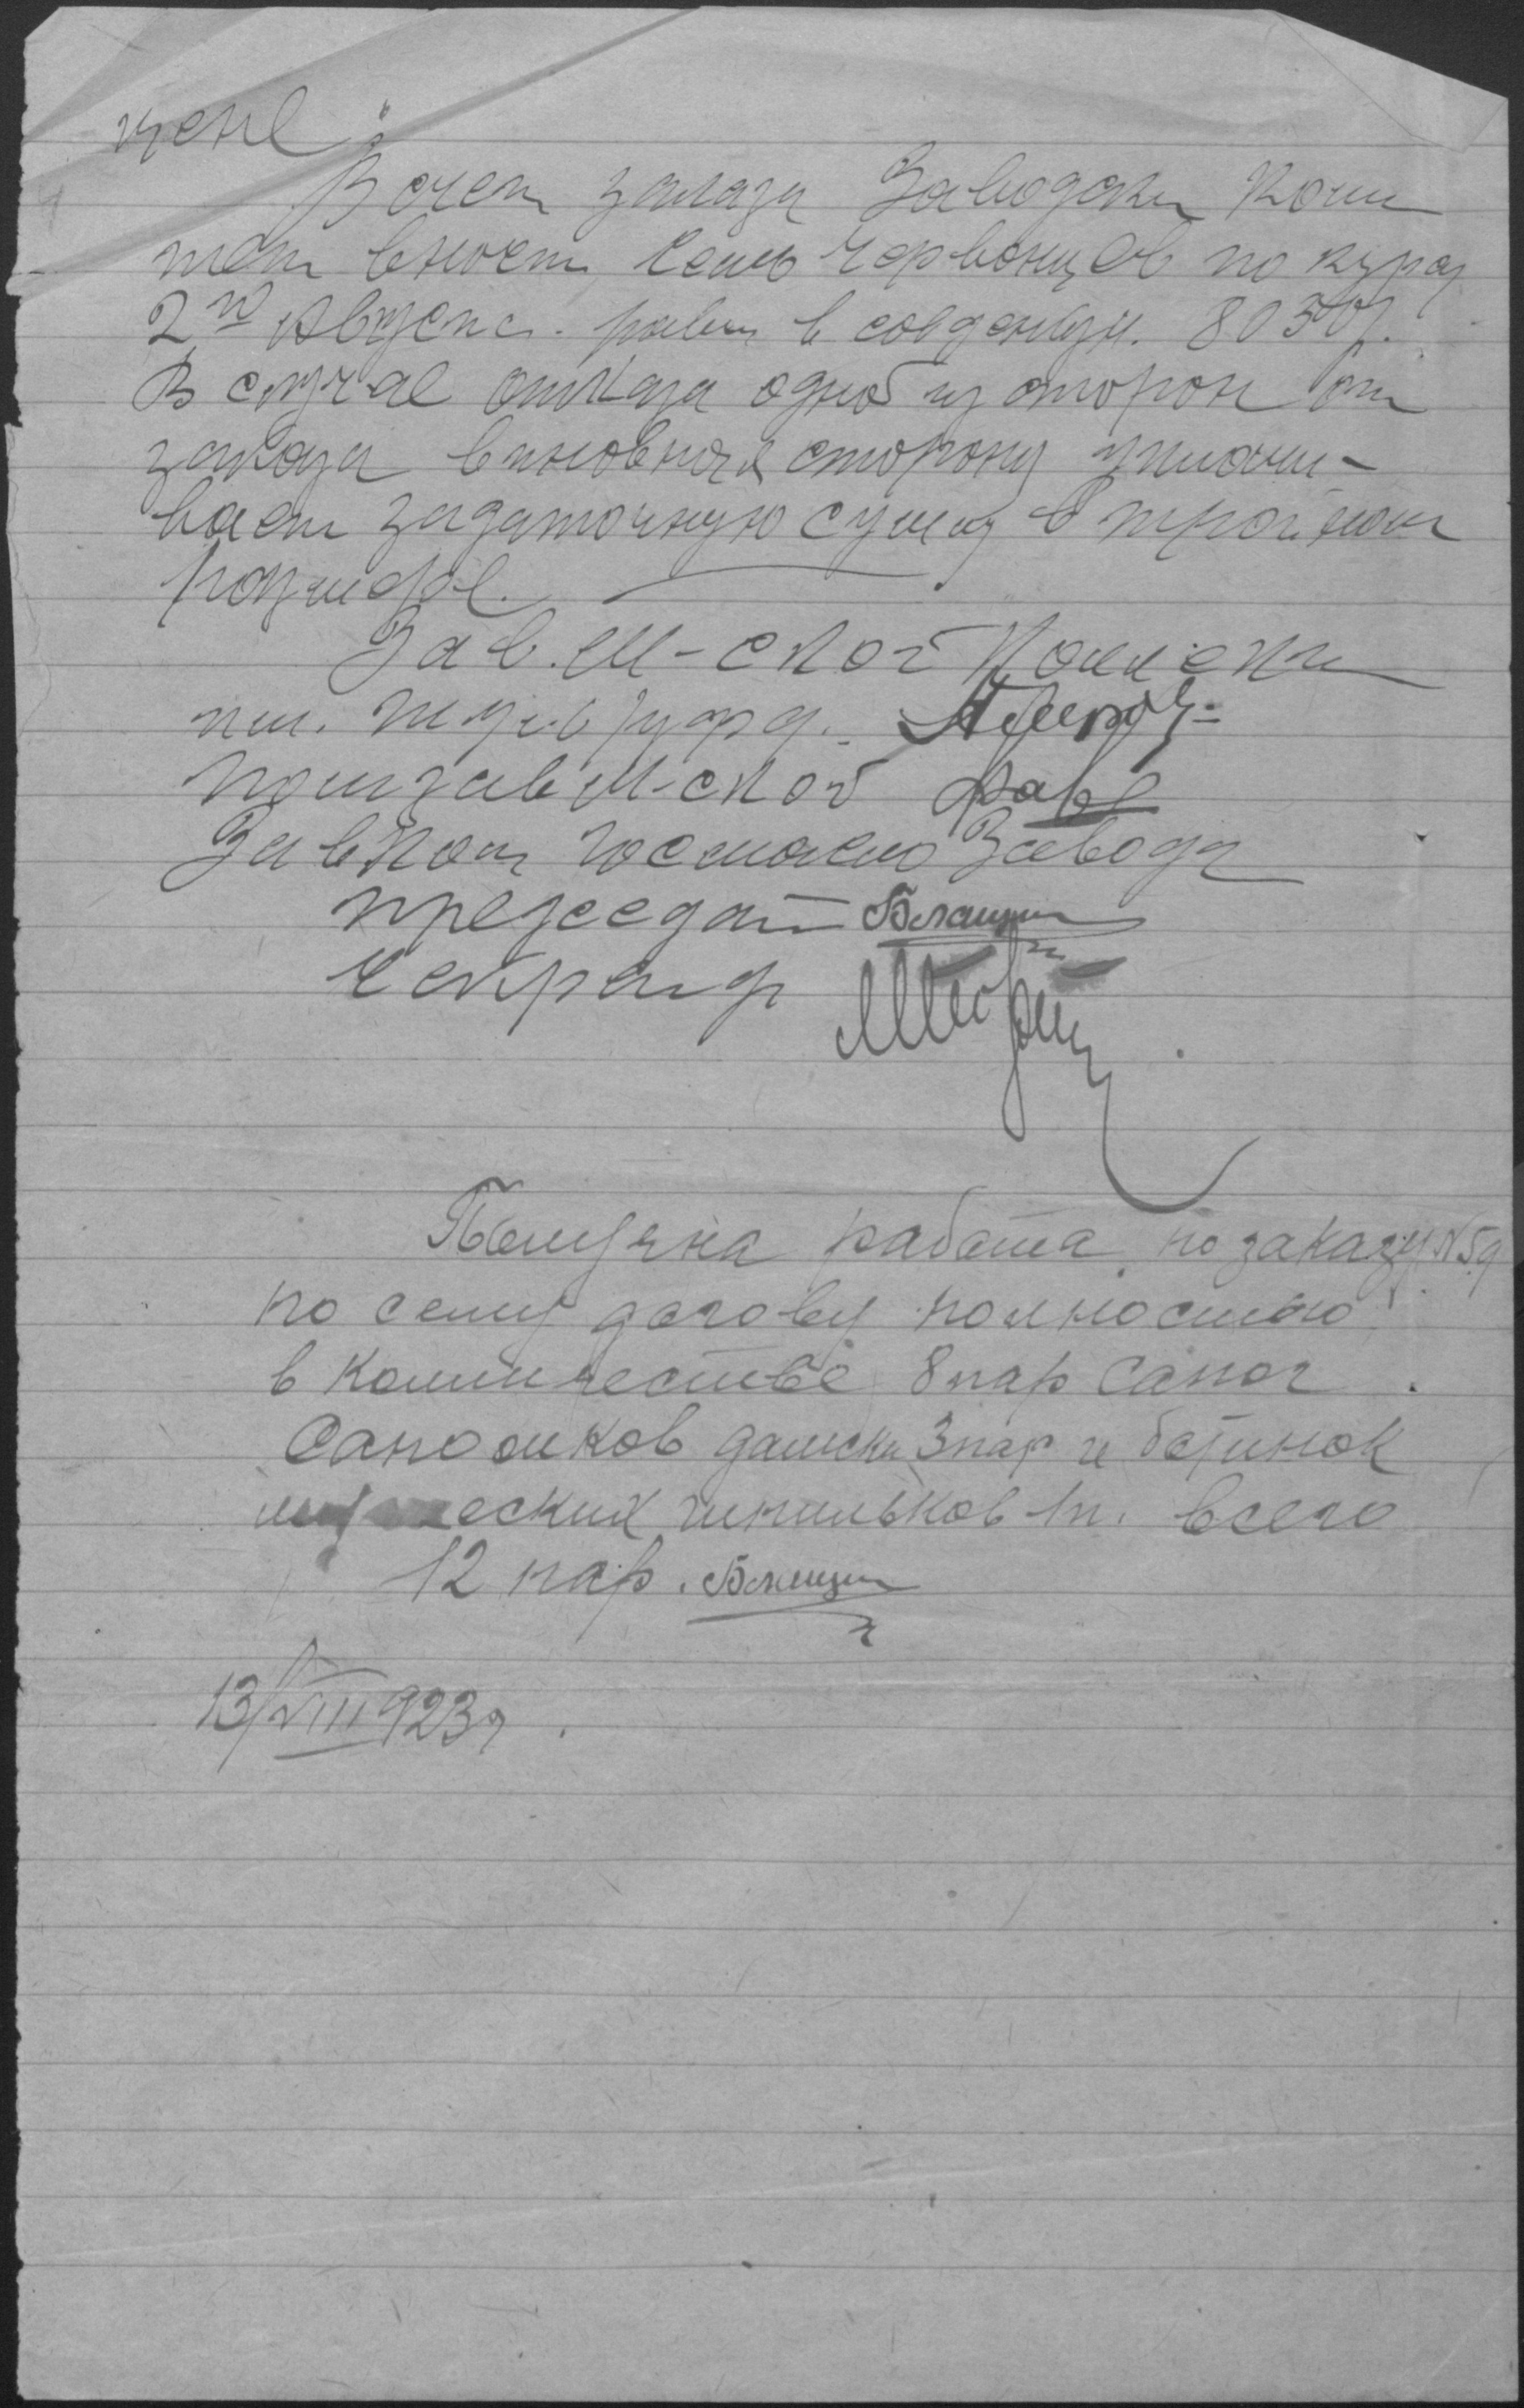 цене:
В счет заказа Заводски Коми
тет вносет семь червонцев по курсу
2го Августа. равн. в совденьзн. 8050р.
В случае отказа одной из сторон от
заказа виновная сторону уплачи-
вает задаточную сумму в тройном
размере.
Зав. М-ской
Помзав М-ской
Завком Завода
председат
Секретар
Получена работа по заказу №59
по сему догову полностью
в количестве 8 пар Сапог
Сапожков дамски 3 пар и ботинок
шпильков 1п. всего
12 пар.
13/VIII 923г